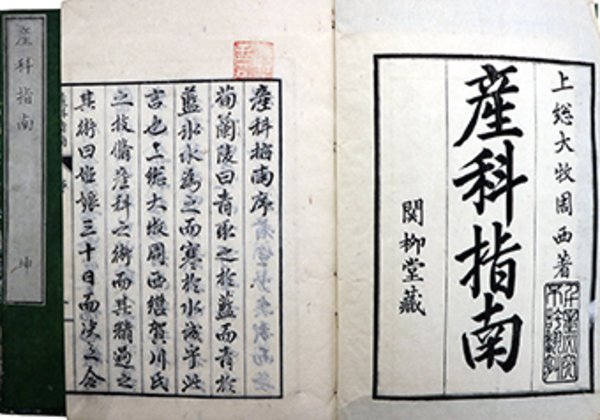 上総大牧周西著
產科指南
関柳堂藏
產科指南序
荀蘭陵曰青取之於藍而青於
藍氷水為之而寒於水誠哉此
言也上総大牧周西継賀川氏
之技脩產科之術而其精過之
其術曰姙娠三十日而決之合
產科指南
坤